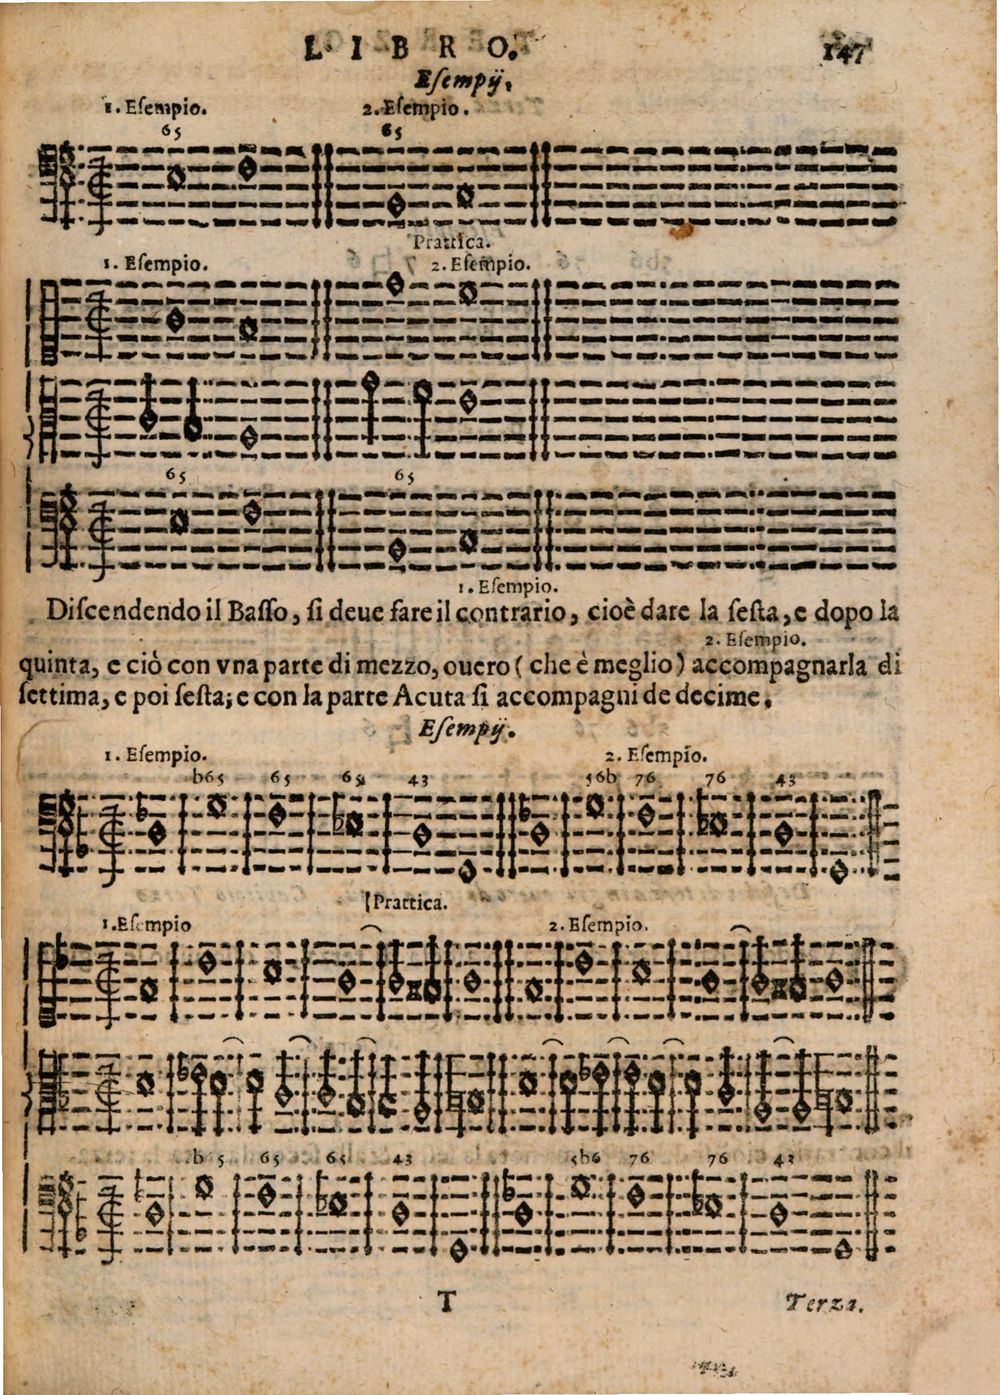 LIBRO. 147
Eſempÿ.
1. Eſempio. 2. Eſempio.
65 65
Prattica.
1. Eſempio. 2. Eſempio.
65 65
1. Eſempio.
Diſcendendo il Baſſo, ſi deue fare il contrario, cioè dare la ſeſta, e dopo la
2. Eſempio.
quinta, e ciò con vna parte di mezzo, ouero ( che è meglio ) accompagnarla di
ſettima, e poi ſeſta; e con la parte Acuta ſi accompagni de decime.
Eſempÿ.
1. Eſempio. 2. Eſempio.
b65 65 65 43 56b 76 76 43
Prattica.
1. Eſempio 2. Eſempio.
b 5 65 65 43 5b6 76 76 43
T Terza.